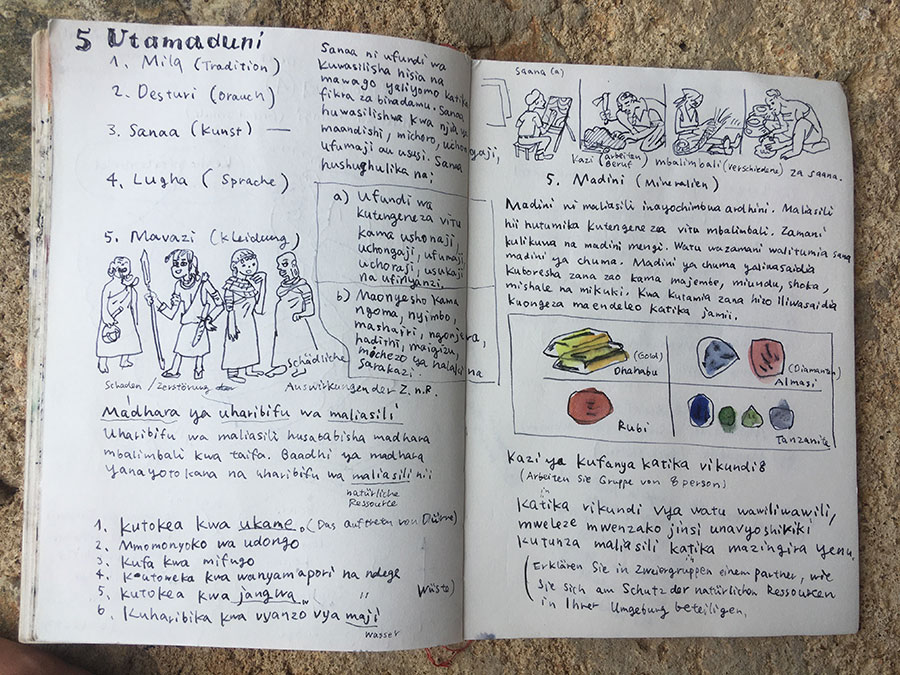 5 Utamaduni
1. Mila (Tradition)
2. Desturi (Brauch)
3. Sanaa (Kunst) —
4. Lugha (Sprache)
5. Mavazi (Kleidung)
Sanaa ni ufundi wa
kuwasilisha hisia na
mawago yaliyomo katika
fikra za binadamu. Sanaa
huwasilishwa kwa njia ya
maandishi, michoro, uchongaji,
ufumaji au ususi. Sanaa
hushughulika na;
a) Ufundi wa
kutengeneza vitu
kama ushonaji,
uchongaji, ufumaji,
uchoraji, usukaji
na ufinyanzi.
b) Maonyesho kama
ngoma, nyimbo,
mashairi, ngonjera,
hadithi, maigizo,
michezo ya halaiki na
sarakazi.
Schädliche
Schaden / Zerstörung
Auswirkungen der Z.n.R.
Madhara ya uharibifu wa maliasili
Uharibifu wa maliasili husababisha madhara
mbalimbali kwa taifa. Baadhi ya madhara
yanayotokana na uharibifu wa maliasili nii
natürliche
Ressource
1. Kutokea kwa ukame. (Das auftreten von Dürre)
2. Mmomonyoko wa udongo
3. Kufa kwa mifugo
4. Kutoweka kwa wanyamapori na ndege
5. Kutokea kwa jangwa (" Wüste)
6. Kuharibika kwa vyanzo vya maji
wasser
saana (a)
Kazi (arbeiten Beruf) mbalimbali (verschiedene) za saana.
5. Madini (Mineralien)
Madini ni maliasili inayochimbwa ardhini. Maliasili
hii hutumika kutengeneza vitu mbalimbali. Zamani
kulikuwa na madini mengi. Watu wazamani walitumia sana
madini ya chuma. Madini ya chuma yalinasaidia
kuboresha zana zao kama majembe, miundu, shoka,
mishale na mikuki. Kwa kutumia zana hizo iliwasaidia
kuongeza maendeleo katika jamii.
(Gold)
Dhahabu
(Diamanten)
Almasi
Rubi
Tanzanite
Kazi ya kufanya katika vikundi 8
(Arbeiten Sie Gruppe von 8 person)
in
Katika vikundi vya watu wawiliwawili,
mweleze mwenzako jinsi unavyoshiriki
kutunza maliasili katika mazingira yenu.
(Erklären Sie in Zweiergruppen einem partner, wie
Sie sich am Schutz der natürlichen Ressourcen
in Ihrer Umgebung beteiligen.